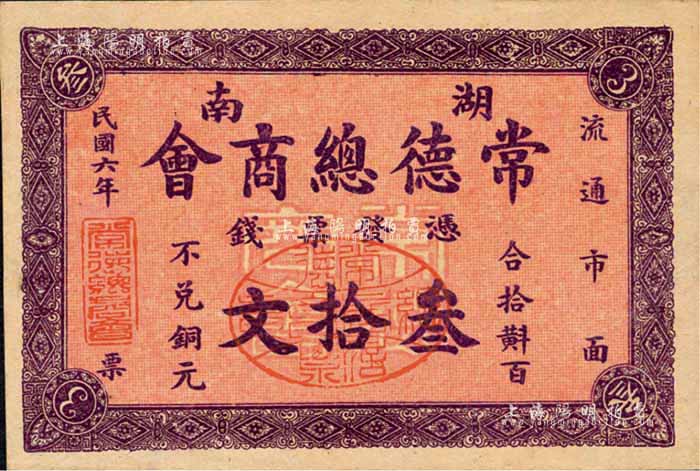 湖南
常德總商會
憑發票錢
叁拾文
流通市面
合拾斢百
不兑銅元
民國六年
票
叁
上海陽明拍賣
上海陽明拍賣
上海陽明拍賣